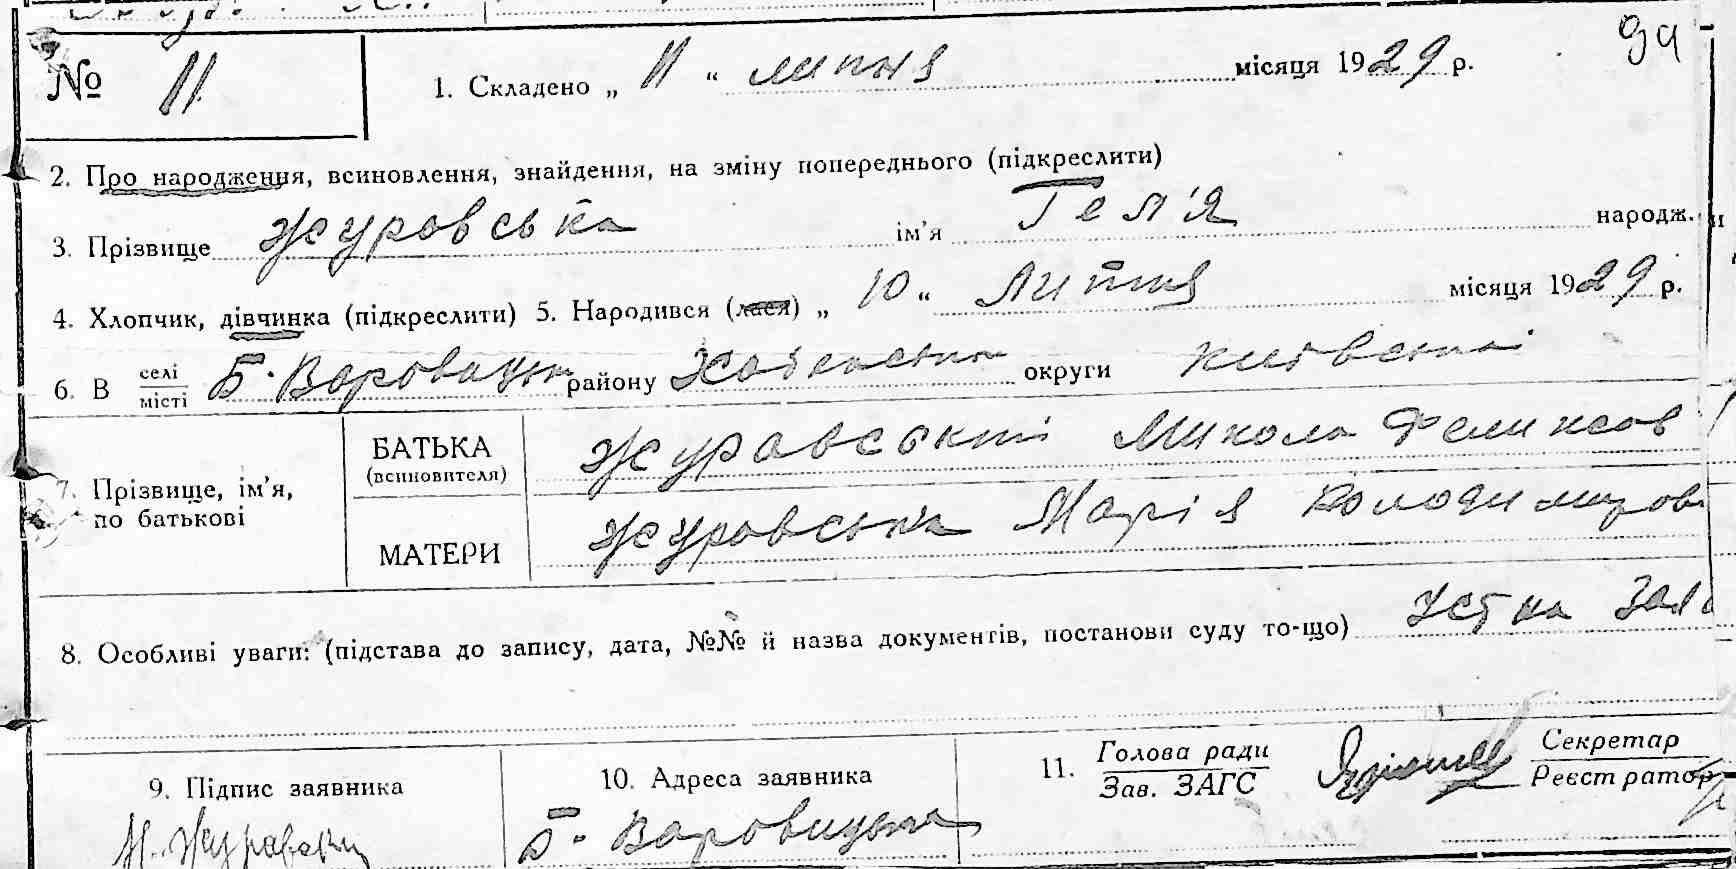 № 11
1. Складено „ 11 “ липня місяця 1929 р.
2. Про народження, всиновлення, знайдення, на зміну попереднього (підкреслити)
3. Прізвище Журовська ім’я Гел’я народж.
4. Хлопчик, дівчинка (підкреслити) 5. Народився (лася) „ 10 “ Липня місяця 1929 р.
6. В селі місті Б. Воровицьк району округи Київської
7. Прізвище, ім’я, по батькові
БАТЬКА (всиновителя) Журавський Микола Феликсов
МАТЕРИ Журовська Марія Володимиров
8. Особливі уваги: (підстава до запису, дата, №№ й назва документів, постанови суду то-що) Устна Зая
9. Підпис заявника
10. Адреса заявника
11. Голова ради Зав. ЗАГС
Секретар Реєстратор
Б. Воровицька